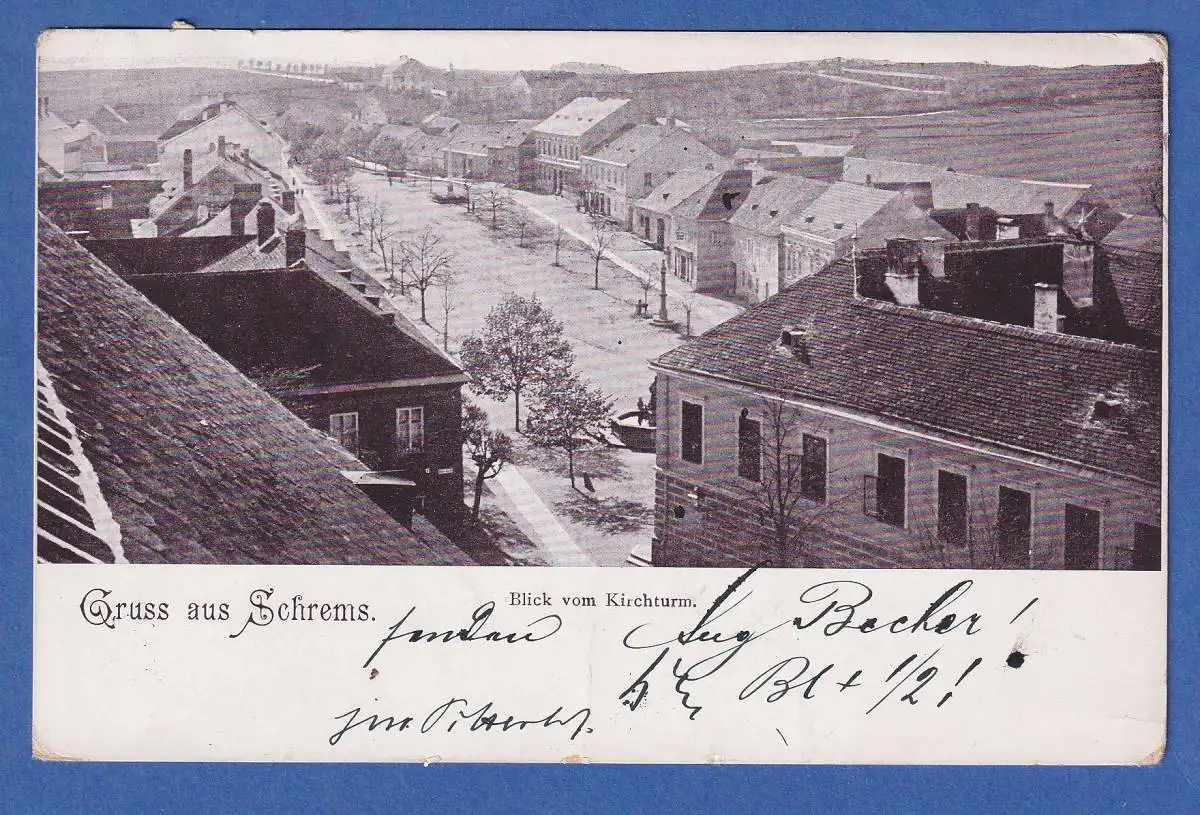 Gruss aus Schrems.
Blick vom Kirchturm.
senden Aug Becher!
Bl + 1/2!